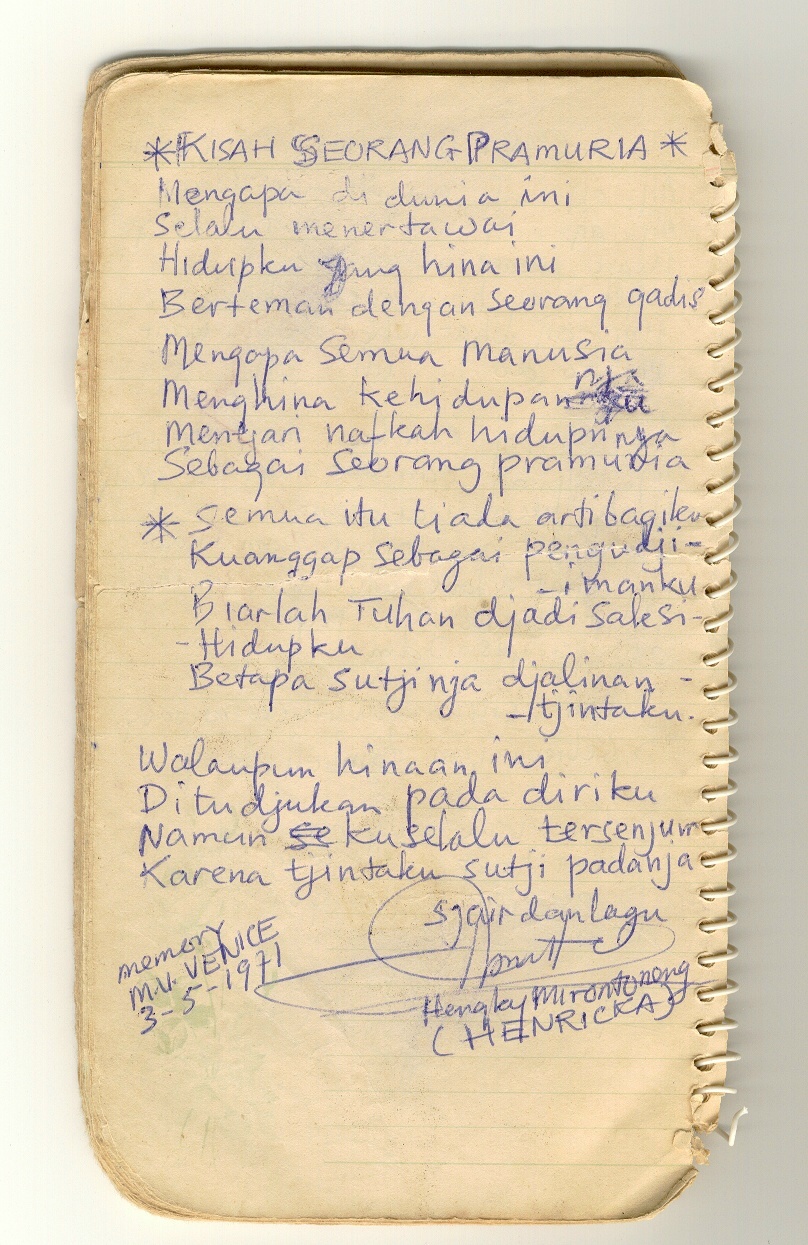 * KISAH SEORANG PRAMURIA *
Mengapa di dunia ini
Selalu menertawai
Hidupku jang hina ini
Berteman dengan seorang gadis
Mengapa semua manusia
Menghina kehidupannja
Mentjari nafkah hidupnnya
Sebagai seorang pramuria
* Semua itu tiada arti bagiku
Kuanggap sebagai pengudji-
-imanku
Biarlah Tuhan djadi saksi-
-Hidupku
Betapa sutjinja djalinan -
-tjintaku.
Walaupun hinaan ini
Ditudjukan pada diriku
Namun se kuselalu tersenjum
Karena tjintaku sutji padanja
Sjair dan lagu
memory
M.V. VENICE
3-5-1971
Hengky Mirontoneng
(HENRICKA)